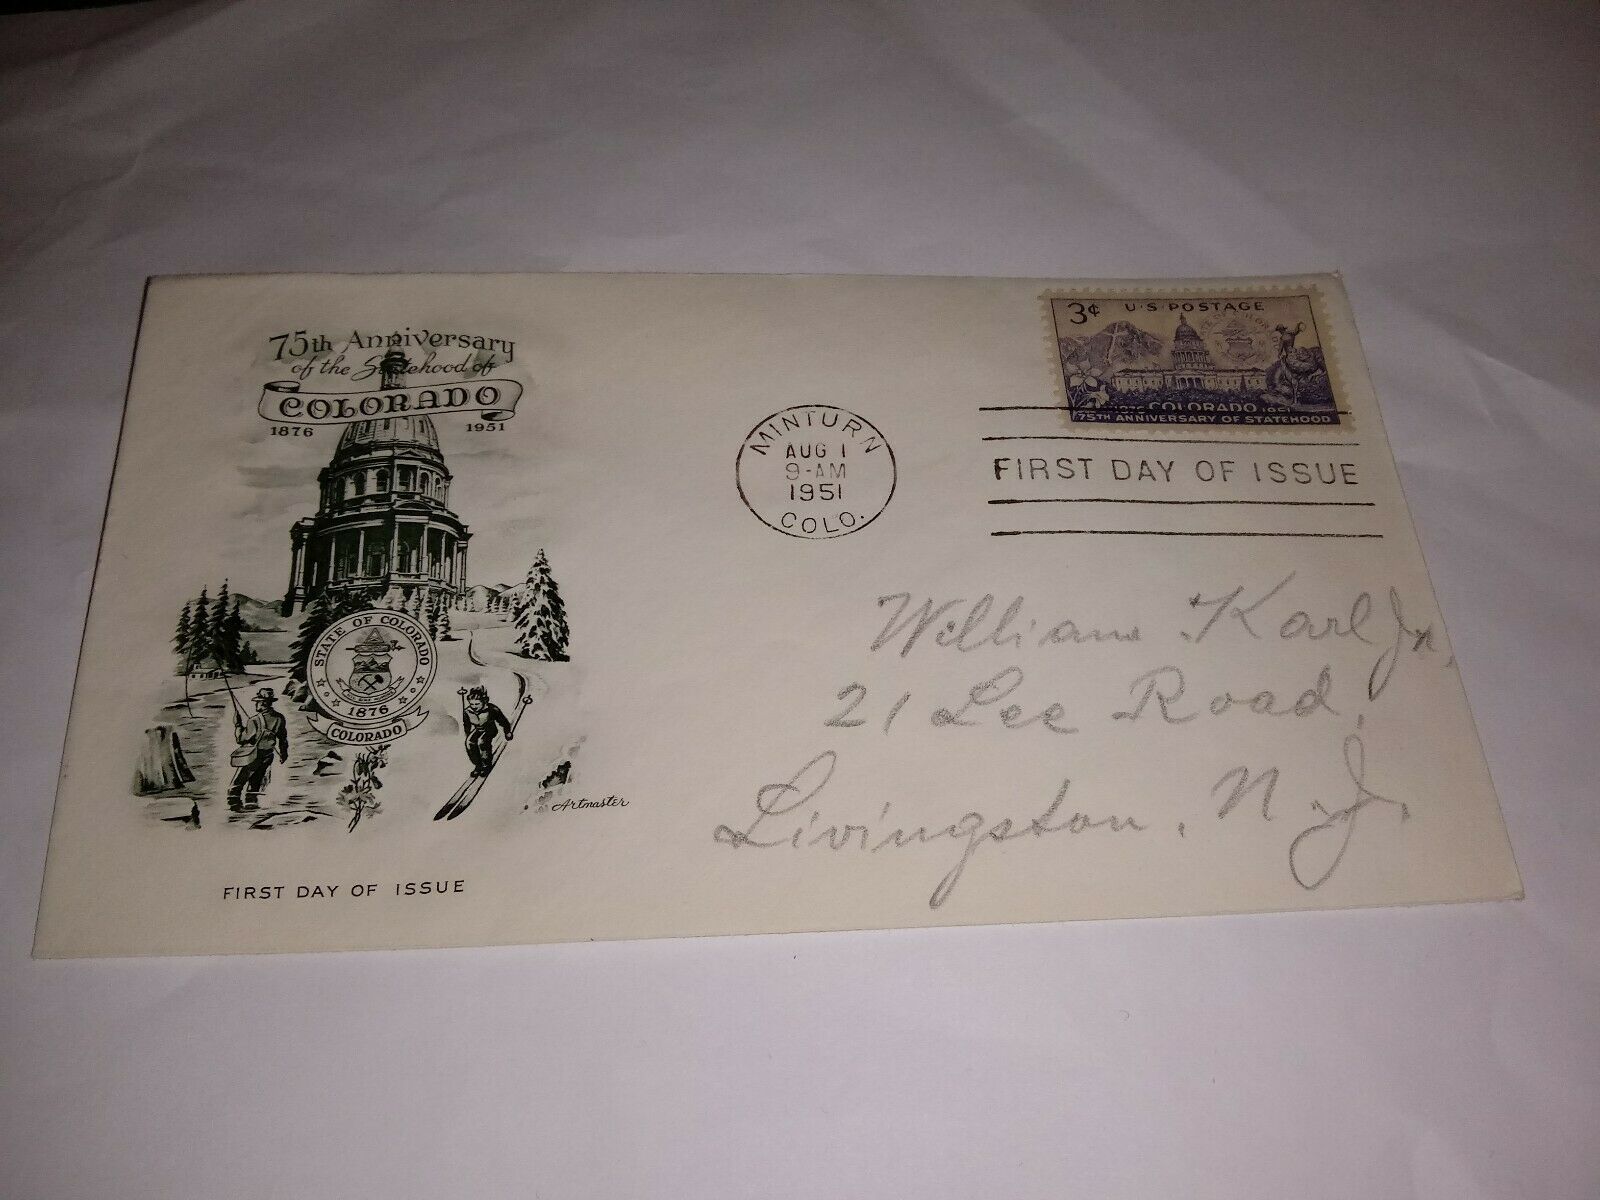 75th Anniversary
of the Statehood of
COLORADO
1876 1951
STATE OF COLORADO
1876
COLORADO
Artmaster
FIRST DAY OF ISSUE
MINTURN
AUG 1
9-AM
1951
COLO.
3¢ U·S·POSTAGE
1876 COLORADO 1951
75TH ANNIVERSARY OF STATEHOOD
FIRST DAY OF ISSUE
William Karl Jr,
21 Lee Road,
Livingston, N.J.